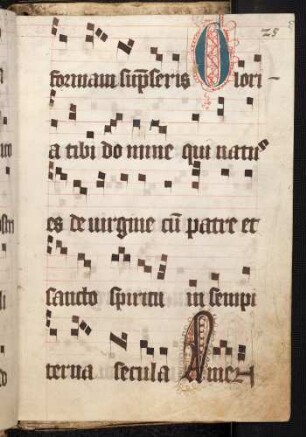 25
formam sūpseris Glori-
a tibi domine qui natus
es de virgine cū patre et
sancto spiritu in sempi
terna secula Amen